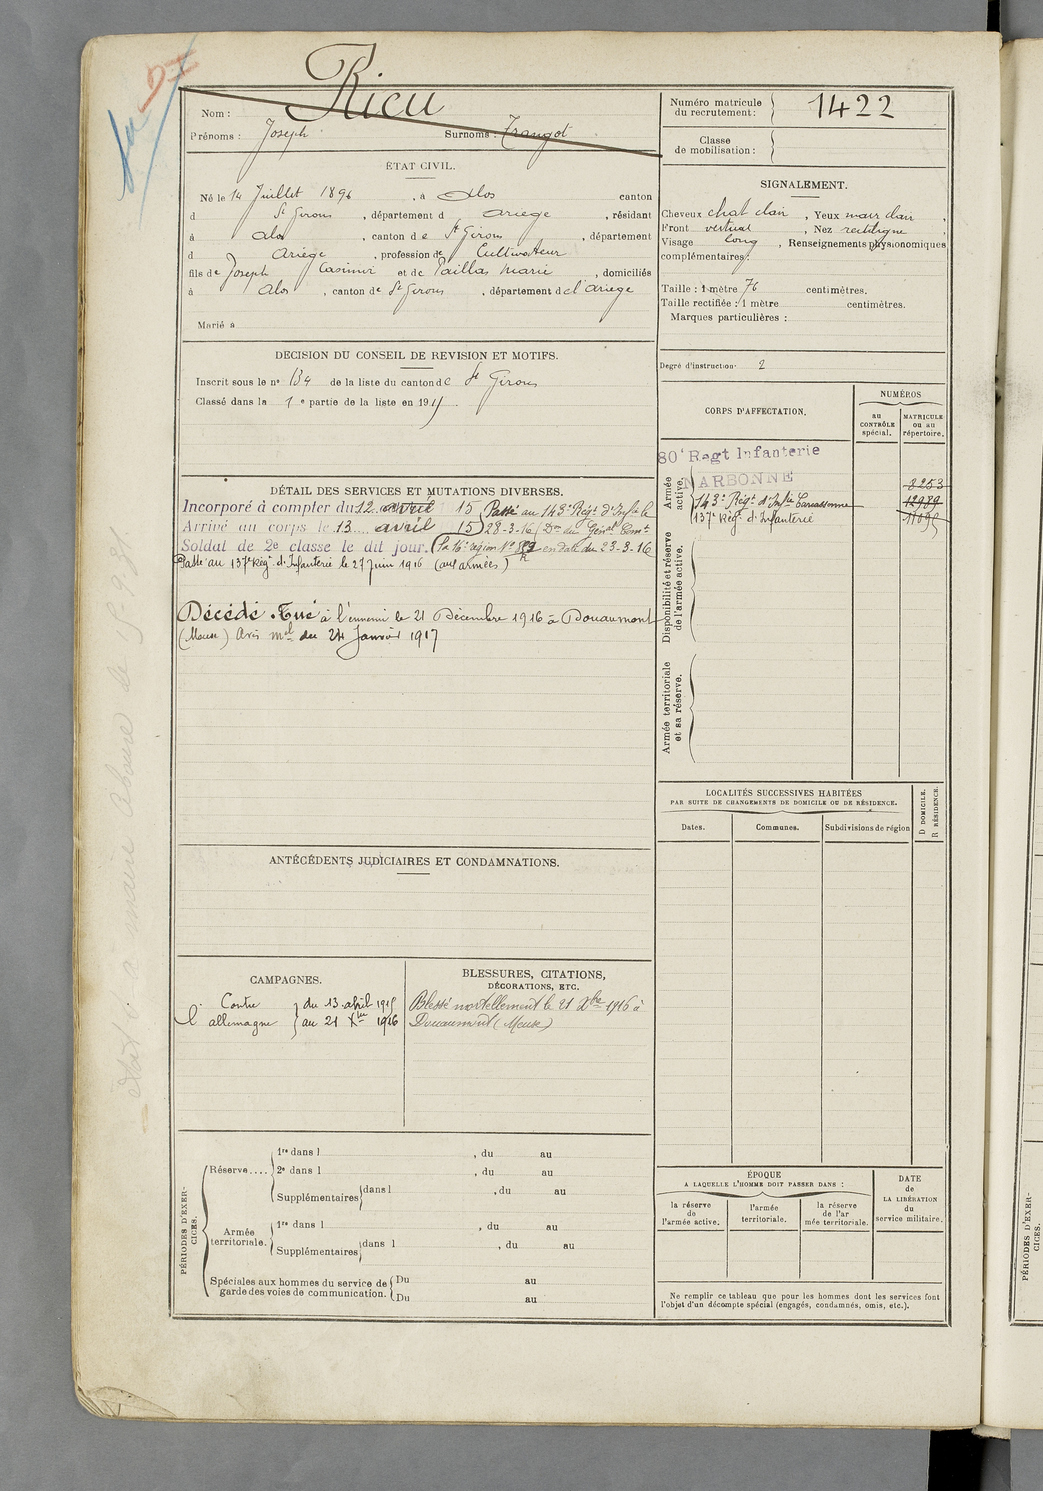 Nom : Rieu
Prénoms : Joseph Surnoms :
Numéro matricule du recrutement : 1422
Classe de mobilisation :
ÉTAT CIVIL.
Né le 14 Juillet 1896, à Alos canton
d St Girons, département d Ariège, résidant
à Alos, canton de St Girons, département
d Ariège, profession de Cultivateur
fils de Joseph Casimir et de Paillas Marie, domiciliés
à Alos, canton de St Girons, département de l'Ariège
Marié à
SIGNALEMENT.
Cheveux chat clair, Yeux marr clair,
Front vertical, Nez rectiligne,
Visage long, Renseignements physionomiques
complémentaires :
Taille : 1 mètre 76 centimètres.
Taille rectifiée : 1 mètre centimètres.
Marques particulières :
Degré d'instruction : 2
DECISION DU CONSEIL DE REVISION ET MOTIFS.
Inscrit sous le n° 134 de la liste du canton de St Girons
Classé dans la 1e partie de la liste en 1915
CORPS D'AFFECTATION.
NUMÉROS
au CONTRÔLE spécial.
MATRICULE ou au répertoire.
Armée active.
80e Regt Infanterie
NARBONNE 8253
143e Régt d'Infie Carcassonne 12989
137e Régt d'Infanterie
Disponibilité et réserve de l'armée active.
Armée territoriale et sa réserve.
DÉTAIL DES SERVICES ET MUTATIONS DIVERSES.
Incorporé à compter du 12 avril 15 Passé au 143e Régt d'Infie le
Arrivé au corps le 13 avril 15 28-3-16 Don du Génal Comt
Soldat de 2e classe le dit jour. la 16e région N° en date du 23-3-16
Passé au 137e Régt d'Infanterie le 27 juin 1916 (aux armées)
Décédé. Tué à l'ennemi le 21 Décembre 1916 à Douaumont
(Meuse) Avis mel du 24 Janvier 1917
LOCALITÉS SUCCESSIVES HABITÉES
PAR SUITE DE CHANGEMENTS DE DOMICILE OU DE RÉSIDENCE.
Dates. Communes. Subdivisions de région
D DOMICILE.
R RÉSIDENCE.
ANTÉCÉDENTS JUDICIAIRES ET CONDAMNATIONS.
CAMPAGNES.
Contre l'allemagne
du 13 abril 1915
au 21 Xbre 1916
BLESSURES, CITATIONS,
DÉCORATIONS, ETC.
Blessé mortellement le 21 Xbre 1916 à
Douaumont (Meuse)
PÉRIODES D'EXERCICES.
Réserve....
1re dans l , du au
2e dans l , du au
Supplémentaires dans l , du au
Armée territoriale.
1re dans l , du au
Supplémentaires dans l , du au
Spéciales aux hommes du service de garde des voies de communication.
Du au
Du au
ÉPOQUE
A LAQUELLE L'HOMME DOIT PASSER DANS :
la réserve de l'armée active.
l'armée territoriale.
la réserve de l'ar mée territoriale.
DATE de LA LIBÉRATION du service militaire.
Ne remplir ce tableau que pour les hommes dont les services font
l'objet d'un décompte spécial (engagés, condamnés, omis, etc.).
PÉRIODES D'EXER-
CICES.